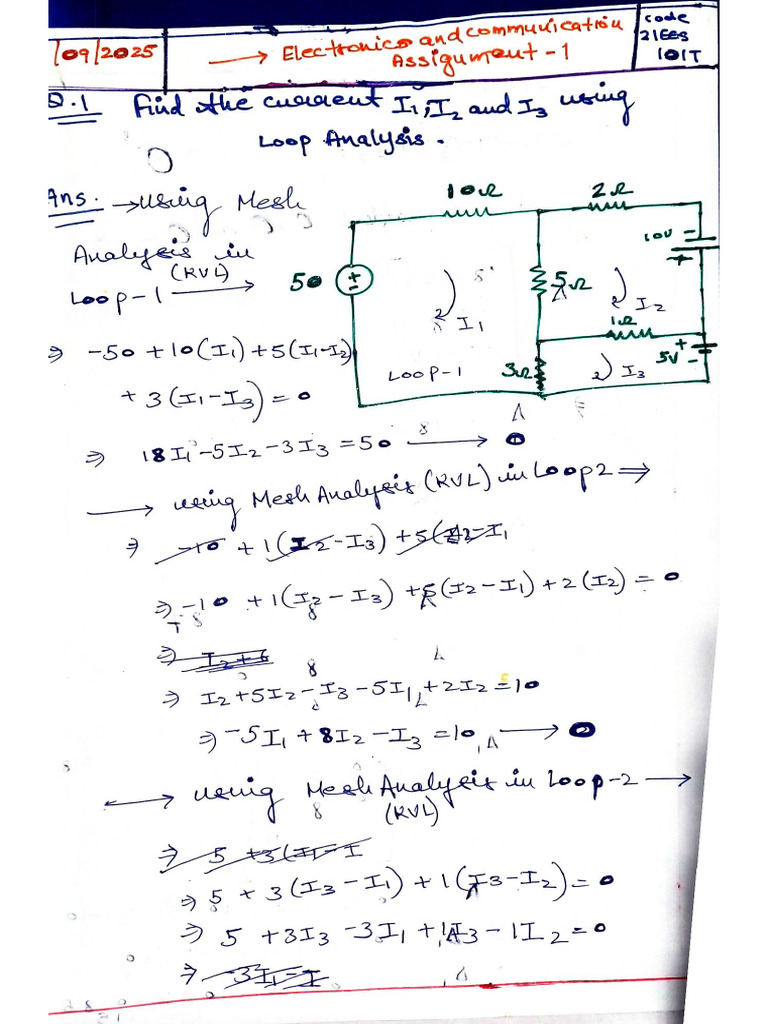 /09/2025
→ Electronics and communication
Assignment-1
code
21EES
101T
Q.1 Find the current I₁, I₂ and I₃ using
Loop Analysis.
Ans. → using Mesh
Analysis in
(KVL)
Loop-1 →
10Ω
2Ω
10V
50
5Ω
I₁
I₂
1Ω
LOOP-1
3Ω
I₃
5V
⇒ -50 + 10(I₁) + 5(I₁-I₂)
+ 3(I₁-I₃) = 0
⇒ 18I₁ - 5I₂ - 3I₃ = 50 →
→ using Mesh Analysis (KVL) in Loop2 ⇒
⇒ -10 + 1(I2-I₃) + 5(I2-I₁
⇒ -10 + 1(I₂ - I₃) + 5(I₂ - I₁) + 2(I₂) = 0
⇒ I₂+6
⇒ I₂ + 5I₂ - I₃ - 5I₁ + 2I₂ = 10
⇒ -5I₁ + 8I₂ - I₃ = 10 →
↔ using Mesh Analysis in Loop-2 →
(KVL)
⇒ 5 + 3(I₁ - I
⇒ 5 + 3(I₃ - I₁) + 1(I₃ - I₂) = 0
⇒ 5 + 3I₃ - 3I₁ + 1I₃ - 1I₂ = 0
⇒ -3I₁ - I